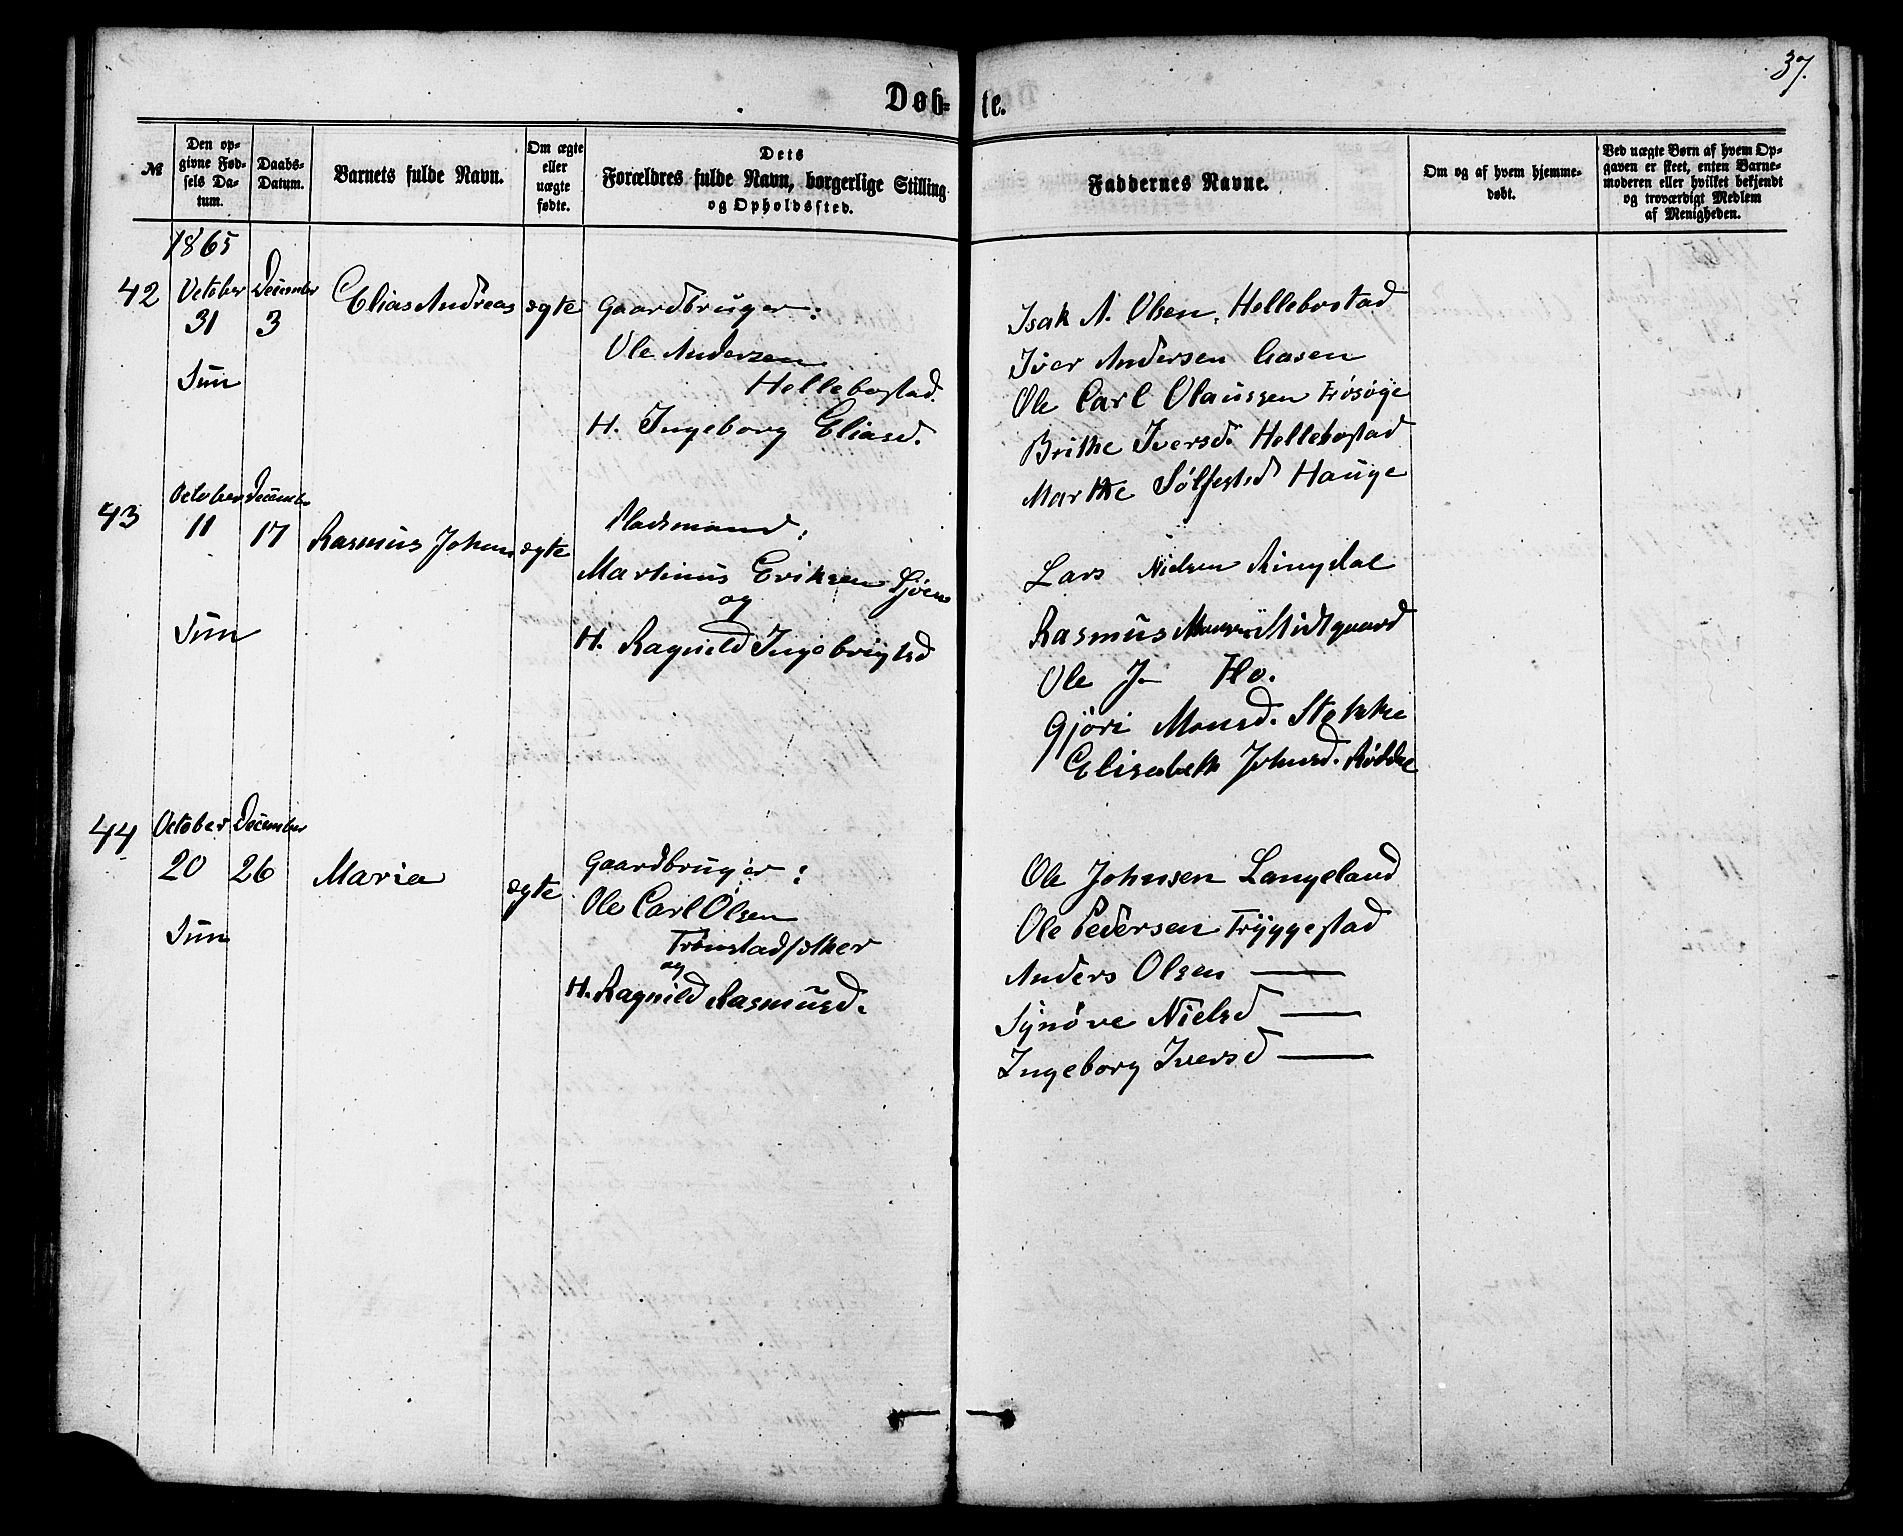 37.
Døb-te.
№
Den op-
givne Fød-
sels Da-
tum.
Daabs-
Datum.
Barnets fulde Navn.
Om ægte
eller
uægte
fødte.
Dets
Forældres fulde Navn, borgerlige Stilling
og Opholdssted.
Faddernes Navne.
Om og af hvem hjemme-
døbt.
Ved uægte Børn af hvem Op-
gaven er skeet, enten Barne-
moderen eller hvilket bekjendt
og troværdigt Medlem
af Menigheden.
1865
42 October 31 December 3 Elias Andreas ægte Gaardbruger:
Sün
Ole Andersen
Hellebostad.
H. Ingeborg Eliasd.
Isak A. Olsen, Hellebostad
Iver Andersen Aasen
Ole Carl Olaussen
Brithe Iversd. Hellebostad
Marthe Sølfestsd Hauge
43 October 11 December 17 Rasmus Johan ægte Pladsmand:
Sün
Martinus Eriksen
og
H. Ragnild Ingebrigtsd
Lars Nielsen Ringdal
Rasmus Midtgaard
Ole J— Ho.
Gjøri Monsd. Stokke
Elisabeth Johnsd.
44 October 20 December 26 Maria ægte Gaardbruger:
Sün
Ole Carl Olsen
Trömstadsæther
og
H. Ragnild Rasmusd.
Ole Johnsen Langeland
Ole Pedersen Tryggestad
Anders Olsen —
Synøve Nielsd —
Ingeborg Iversd —